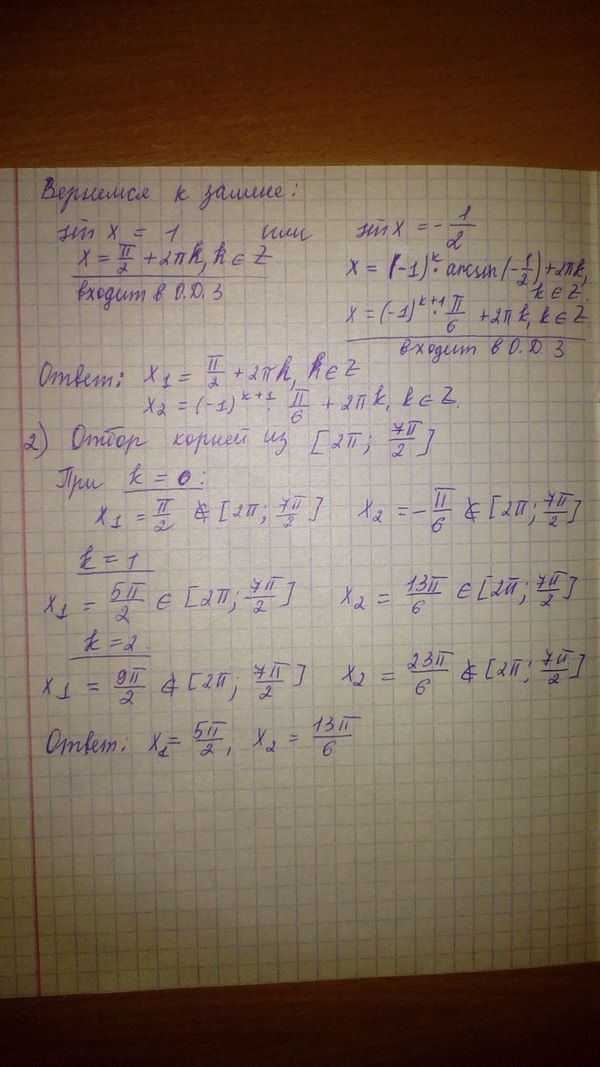 Вернемся к замене:
sin x = 1 или sin x = -1/2
x = π/2 + 2πk, k ∈ Z
входит в О.Д.З
x = (-1)^k · arcsin(-1/2) + 2πk, k ∈ Z.
x = (-1)^(k+1) · π/6 + 2πk, k ∈ Z
входит в О.Д.З
Ответ: x₁ = π/2 + 2πk, k ∈ Z
x₂ = (-1)^(k+1) · π/6 + 2πk, k ∈ Z.
2) Отбор корней из [2π; 7π/2]
При k = 0:
x₁ = π/2 ∉ [2π; 7π/2] x₂ = -π/6 ∉ [2π; 7π/2]
k = 1
x₁ = 5π/2 ∈ [2π; 7π/2] x₂ = 13π/6 ∈ [2π; 7π/2]
k = 2
x₁ = 9π/2 ∉ [2π; 7π/2] x₂ = 23π/6 ∉ [2π; 7π/2]
Ответ: x₁ = 5π/2, x₂ = 13π/6